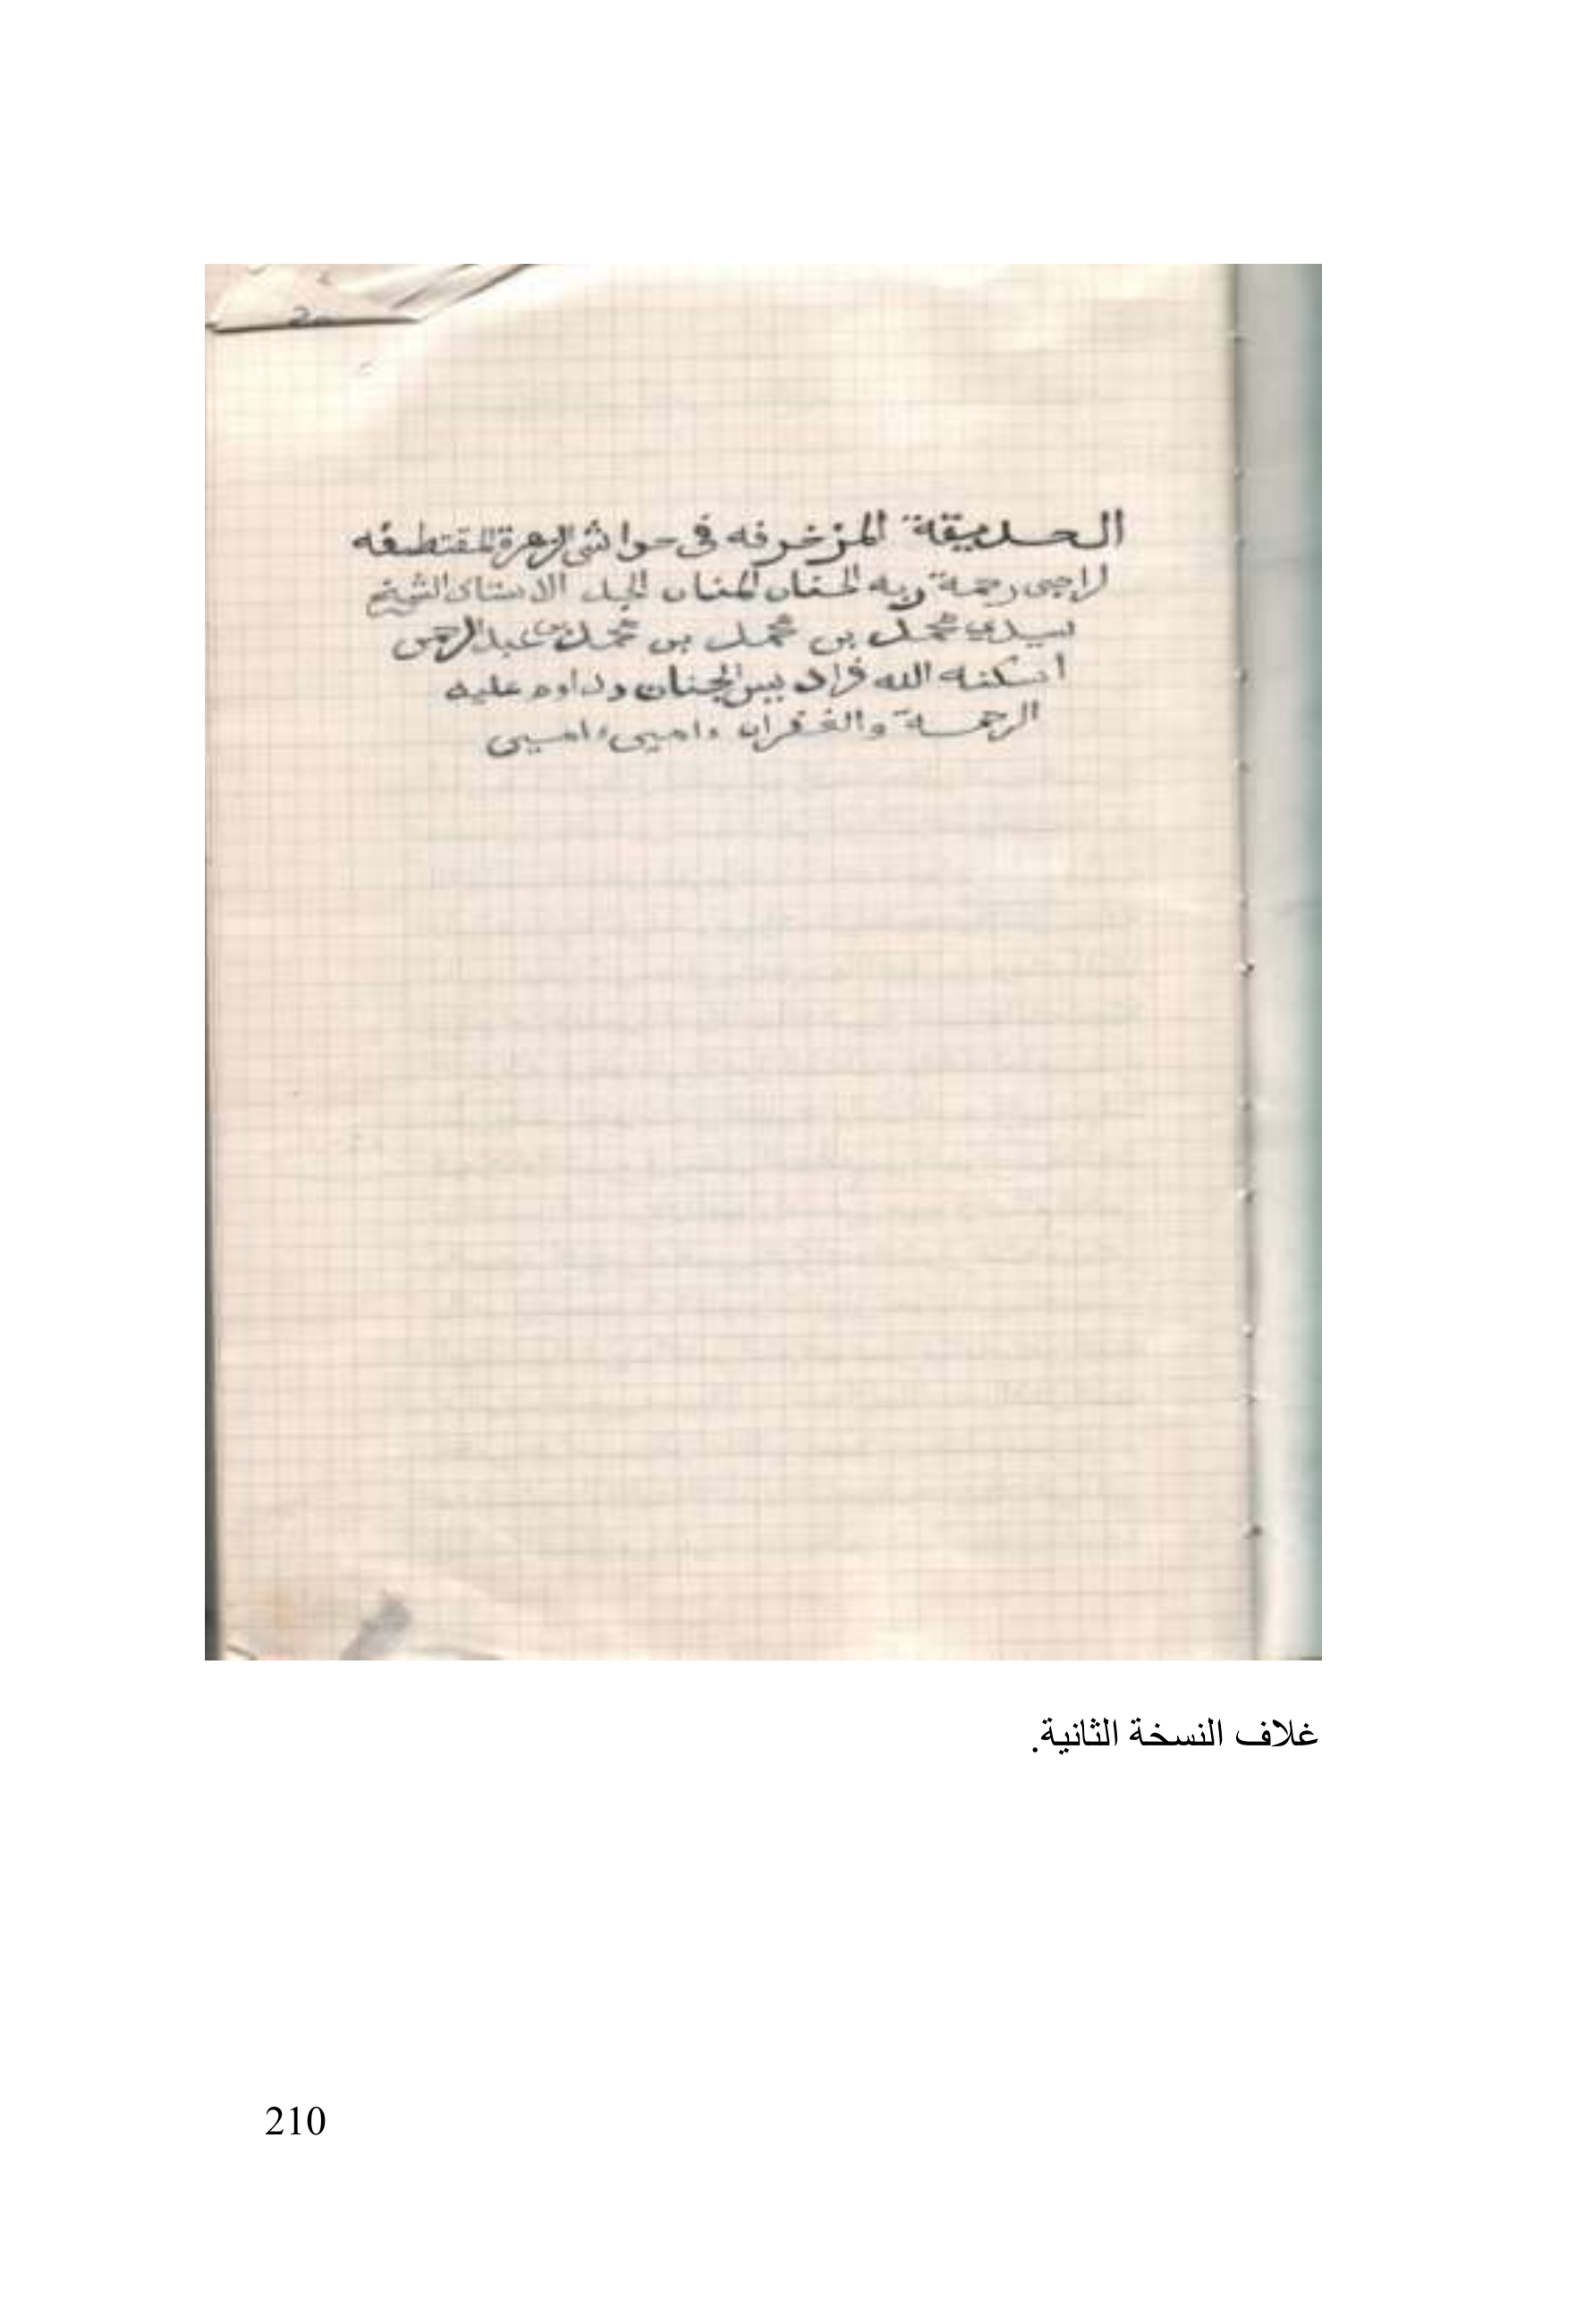 الحديقة المزخرفه في حواشي الزهرة المقتطفه
لراجى رحمة ربه الحنان المنان الجد الاستاذ الشيخ
سيدي محمد بن محمد بن محمد بن عبد الرحمن
أسكنه الله فراديس الجنان وداوم عليه
الرحمة والغفران ءامين ءامين
غلاف النسخة الثانية.
210